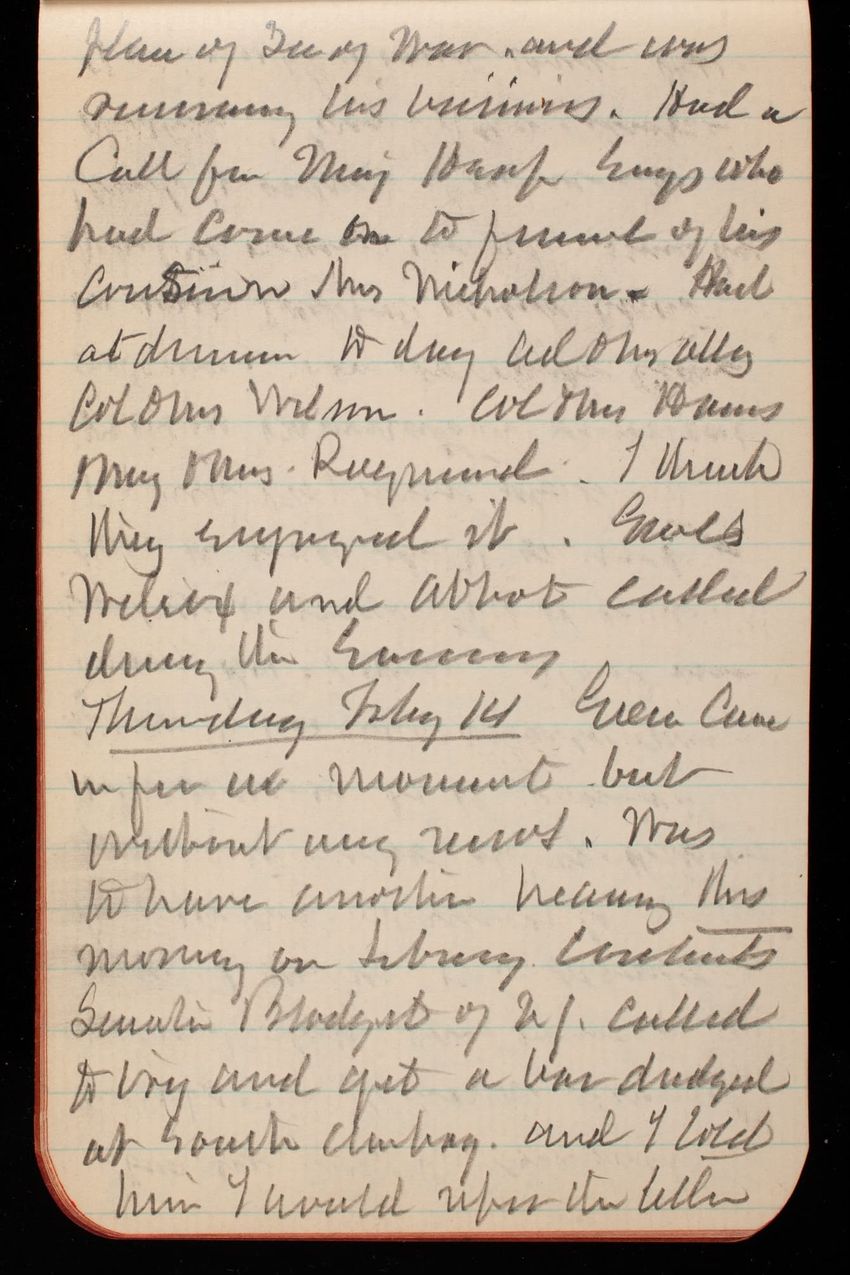 plan of Sec of War. and was
resuming his business. Had a
Call from Maj Genl who
had come on to funeral of his
Cousin Mrs Nicholson. Had
at dinner to day Col & Mrs
Col & Mrs Wilson. Col & Mrs
Maj & Mrs. Raymond. I think
they enjoyed it. Genls
Wilcox and Abbot called
during the Evening
Thursday Feby 14 Green Came
in for a moment but
without any news. Was
to have another hearing this
morning on Library Contracts
Senator Blodget of N J. called
to try and get a bar dredged
at South Amboy. and I told
him I would refer the letter